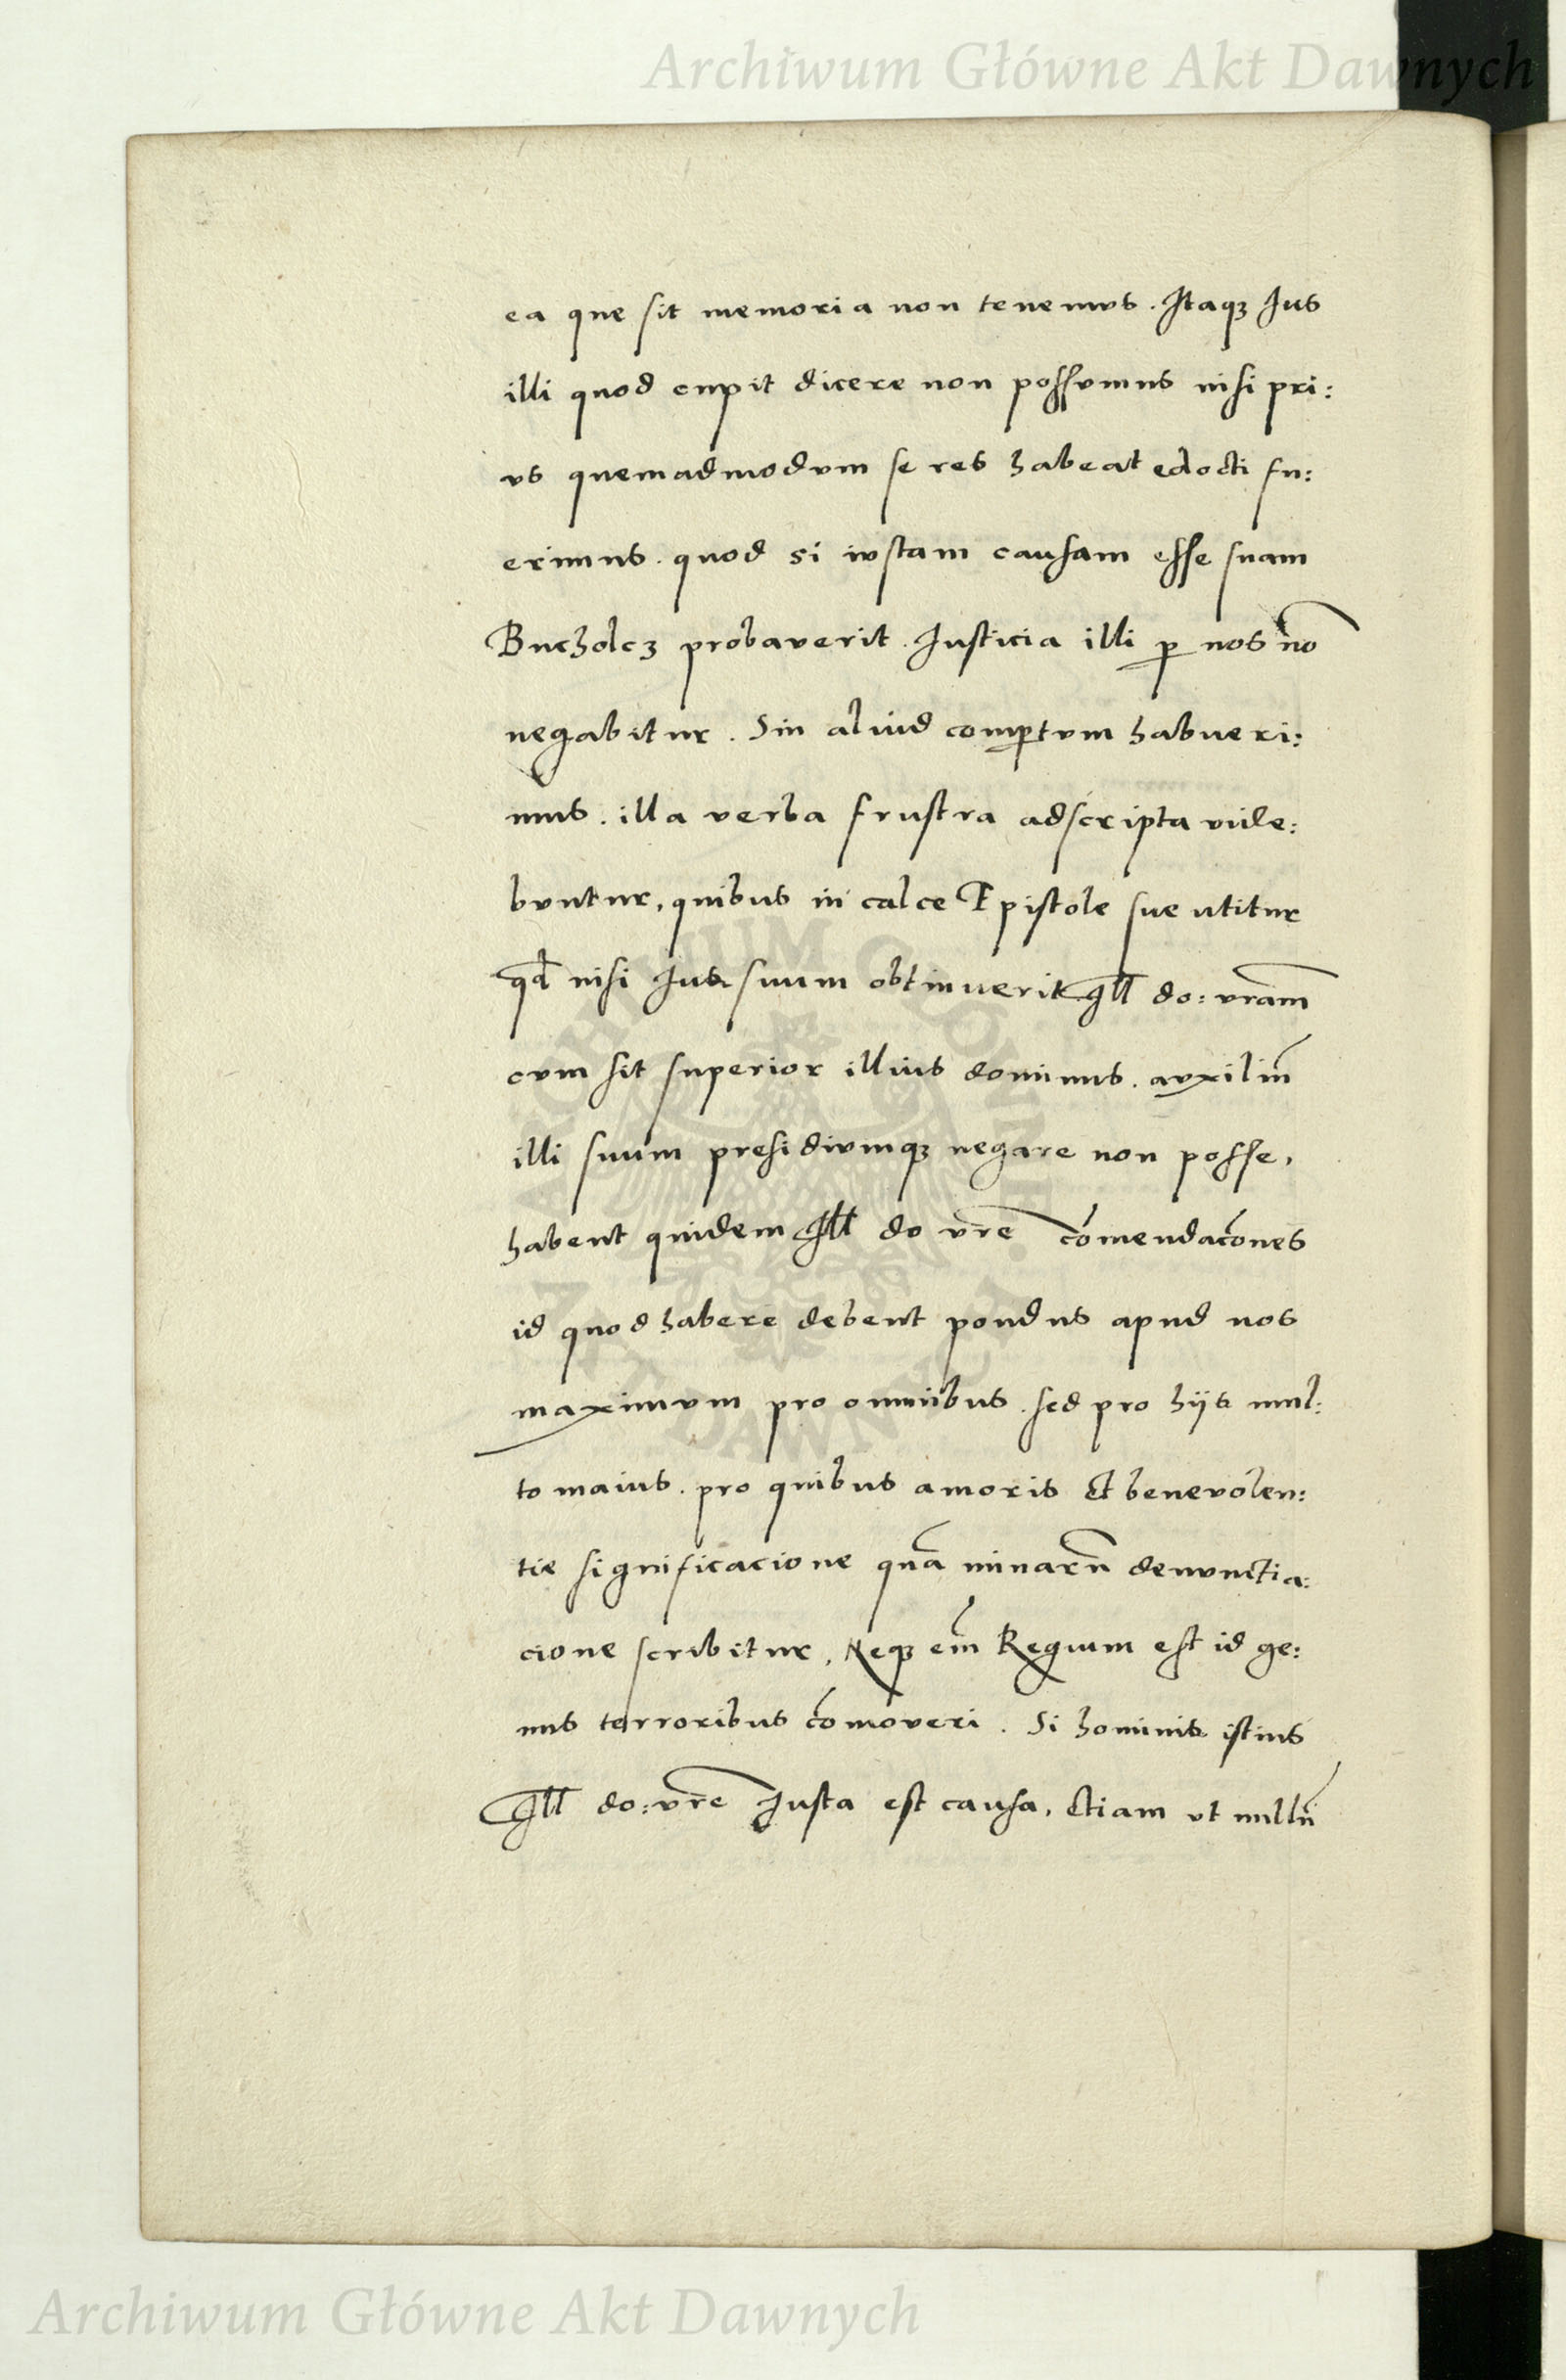 Archiwum Główne Akt Dawnych
ea que sit memoria non tenemvs. Itaqꝫ Jus
illi quod cupit dicere non possvmus nisi pri:
vs quemadmodvm se res habeat edocti fu:
erimus. quod si ivstam causam esse suam
Bucholcz probaverit. Justicia illi ꝑ nos nō
negabitur. Sin aliud comꝑtvm habueri:
mus. illa verba frustra adscripta vide:
bvntur, quibus in calce Epistole sue utitur
qd̄ nisi Jus suum obtinuerit Ill do: vram̄
cvm sit superior illius dominus. avxiliū
illi suum presidivmqꝫ negare non posse,
habent quidem Ill do vrē cōmendacōnes
id quod habere debent pondus apud nos
maximvm pro omnibus. sed pro hijs mul:
to maius. pro quibus amoris et benevolen:
tie significacione quā minarū denvnctia:
cione scribitur, Neqꝫ em̄ Regium est id ge:
nus terroribus cōmoveri. Si hominis istius
Ill do: vrē Justa est causa, Etiam vt nullū
ARCHIWUM GŁÓWNE AKT DAWNYCH
Archiwum Główne Akt Dawnych